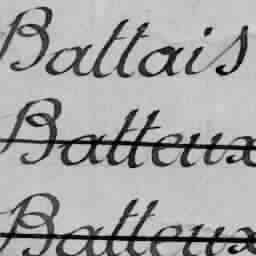 Battais
Batteux
Batteux